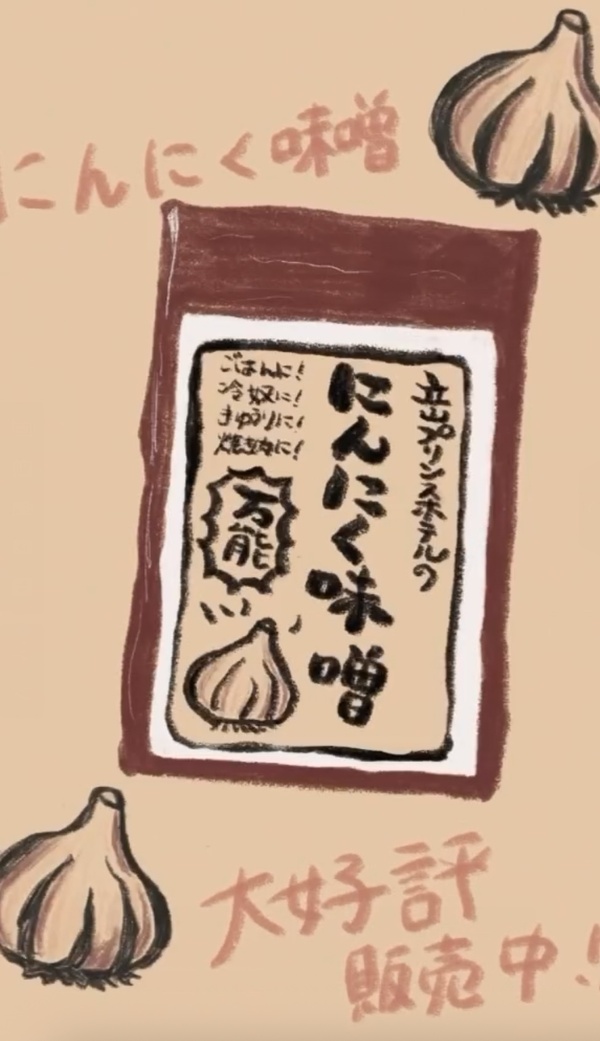 にんにく味噌
立山プリンスホテルの
にんにく味噌
ごはんに!
冷奴に!
きゅうりに!
焼肉に!
万能
大好評
販売中!